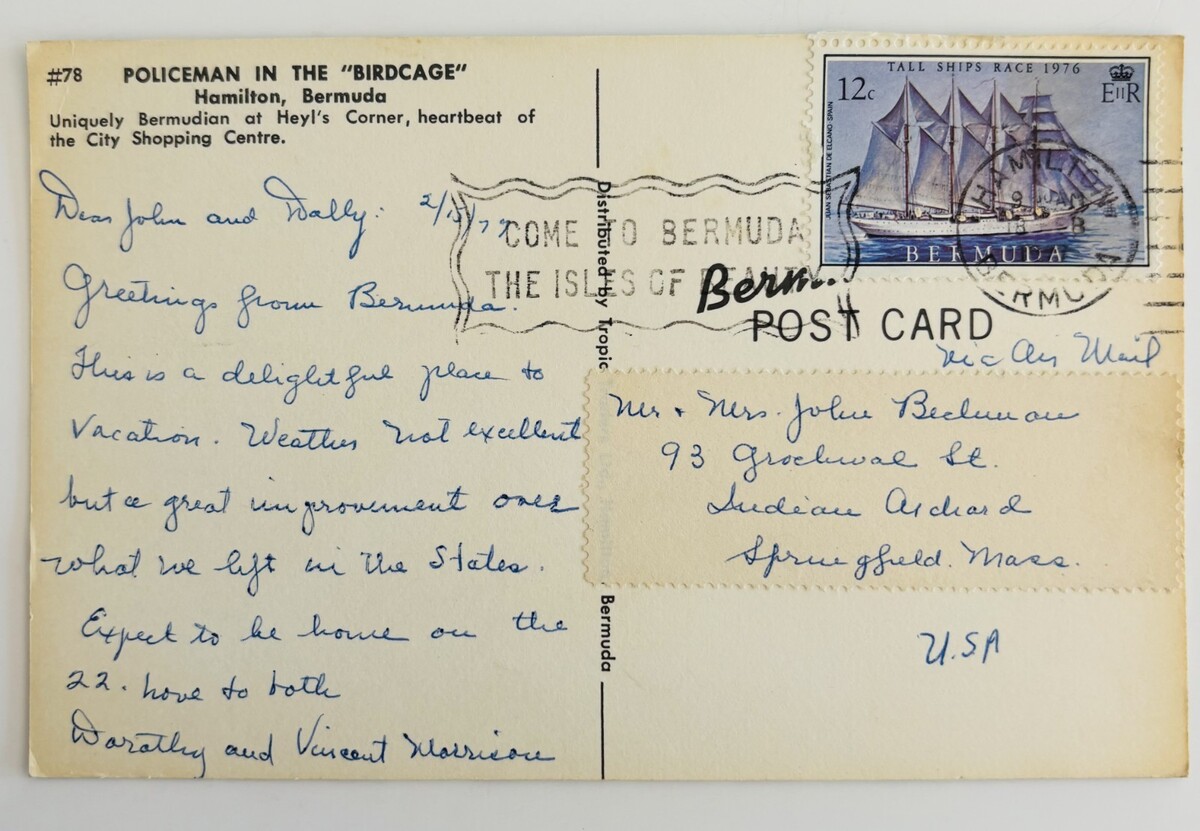 #78 POLICEMAN IN THE "BIRDCAGE"
Hamilton, Bermuda
Uniquely Bermudian at Heyl's Corner, heartbeat of
the City Shopping Centre.
Dear John and Wally:
Greetings from Bermuda.
This is a delightful place to
Vacation. Weather not excellent
but a great improvement over
what we left in the States.
Expect to be home on the
22. Love to both
Dorothy and Vincent Morrison
Distributed by Tropic
Bermuda
COME TO BERMUDA
THE ISLES OF BEAUTY
TALL SHIPS RACE 1976
12c
EIIR
JUAN SEBASTIAN DE ELCANO-SPAIN
BERMUDA
HAMILTON
BERMUDA
Berm.
POST CARD
Via Air Mail
Mr + Mrs. John Beckman
93 St.
Indian Orchard
Springfield. Mass.
U.S.A